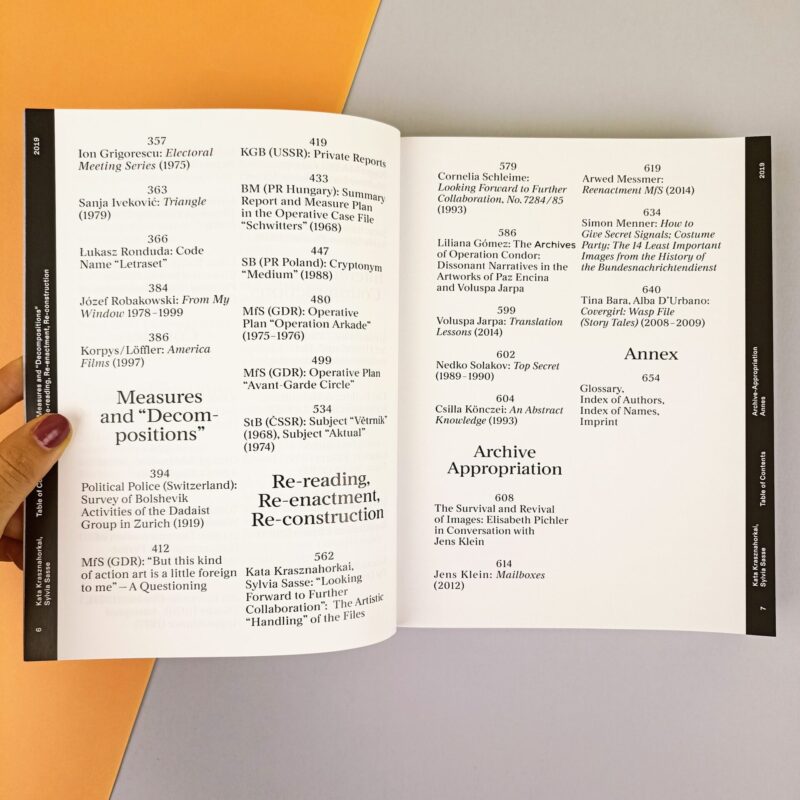 2019
Measures and "Decompositions"
Re-reading, Re-enactment, Re-construction
Table of
Kata Krasznahorkai,
Sylvia Sasse
6
357
Ion Grigorescu: Electoral
Meeting Series (1975)
363
Sanja Iveković: Triangle
(1979)
366
Lukasz Ronduda: Code
Name “Letraset”
384
Józef Robakowski: From My
Window 1978–1999
386
Korpys/Löffler: America
Films (1997)
Measures
and “Decom-
positions”
394
Political Police (Switzerland):
Survey of Bolshevik
Activities of the Dadaist
Group in Zurich (1919)
412
MfS (GDR): “But this kind
of action art is a little foreign
to me” – A Questioning
419
KGB (USSR): Private Reports
433
BM (PR Hungary): Summary
Report and Measure Plan
in the Operative Case File
“Schwitters” (1968)
447
SB (PR Poland): Cryptonym
“Medium” (1988)
480
MfS (GDR): Operative
Plan “Operation Arkade”
(1975–1976)
499
MfS (GDR): Operative Plan
“Avant-Garde Circle”
534
StB (ČSSR): Subject “Větrník”
(1968), Subject “Aktual”
(1974)
Re-reading,
Re-enactment,
Re-construction
562
Kata Krasznahorkai,
Sylvia Sasse: “Looking
Forward to Further
Collaboration”: The Artistic
“Handling” of the Files
579
Cornelia Schleime:
Looking Forward to Further
Collaboration, No. 7284/85
(1993)
586
Liliana Gómez: The Archives
of Operation Condor:
Dissonant Narratives in the
Artworks of Paz Encina
and Voluspa Jarpa
599
Voluspa Jarpa: Translation
Lessons (2014)
602
Nedko Solakov: Top Secret
(1989–1990)
604
Csilla Könczei: An Abstract
Knowledge (1993)
Archive
Appropriation
608
The Survival and Revival
of Images: Elisabeth Pichler
in Conversation with
Jens Klein
614
Jens Klein: Mailboxes
(2012)
619
Arwed Messmer:
Reenactment MfS (2014)
634
Simon Menner: How to
Give Secret Signals; Costume
Party; The 14 Least Important
Images from the History of
the Bundesnachrichtendienst
640
Tina Bara, Alba D’Urbano:
Covergirl: Wasp File
(Story Tales) (2008–2009)
Annex
654
Glossary,
Index of Authors,
Index of Names,
Imprint
2019
Archive-Appropriation
Annex
Table of Contents
Kata Krasznahorkai,
Sylvia Sasse
7